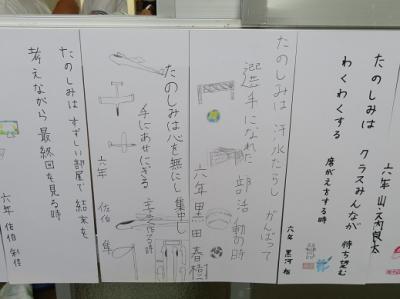 六年 山大内良太
たのしみは クラスみんなが 待ち望む
わくわくする 席がえをする時
六年 黒河
たのしみは 汗水たらし がんばって
選手になれた 部活動の時
六年 里田 春樹
たのしみは心を無にし集中し
手にあせにぎる 作る時
六年 佐伯 隼
たのしみは すずしい部屋で 結末を
考えながら 最終回を見る時
六年 佐伯